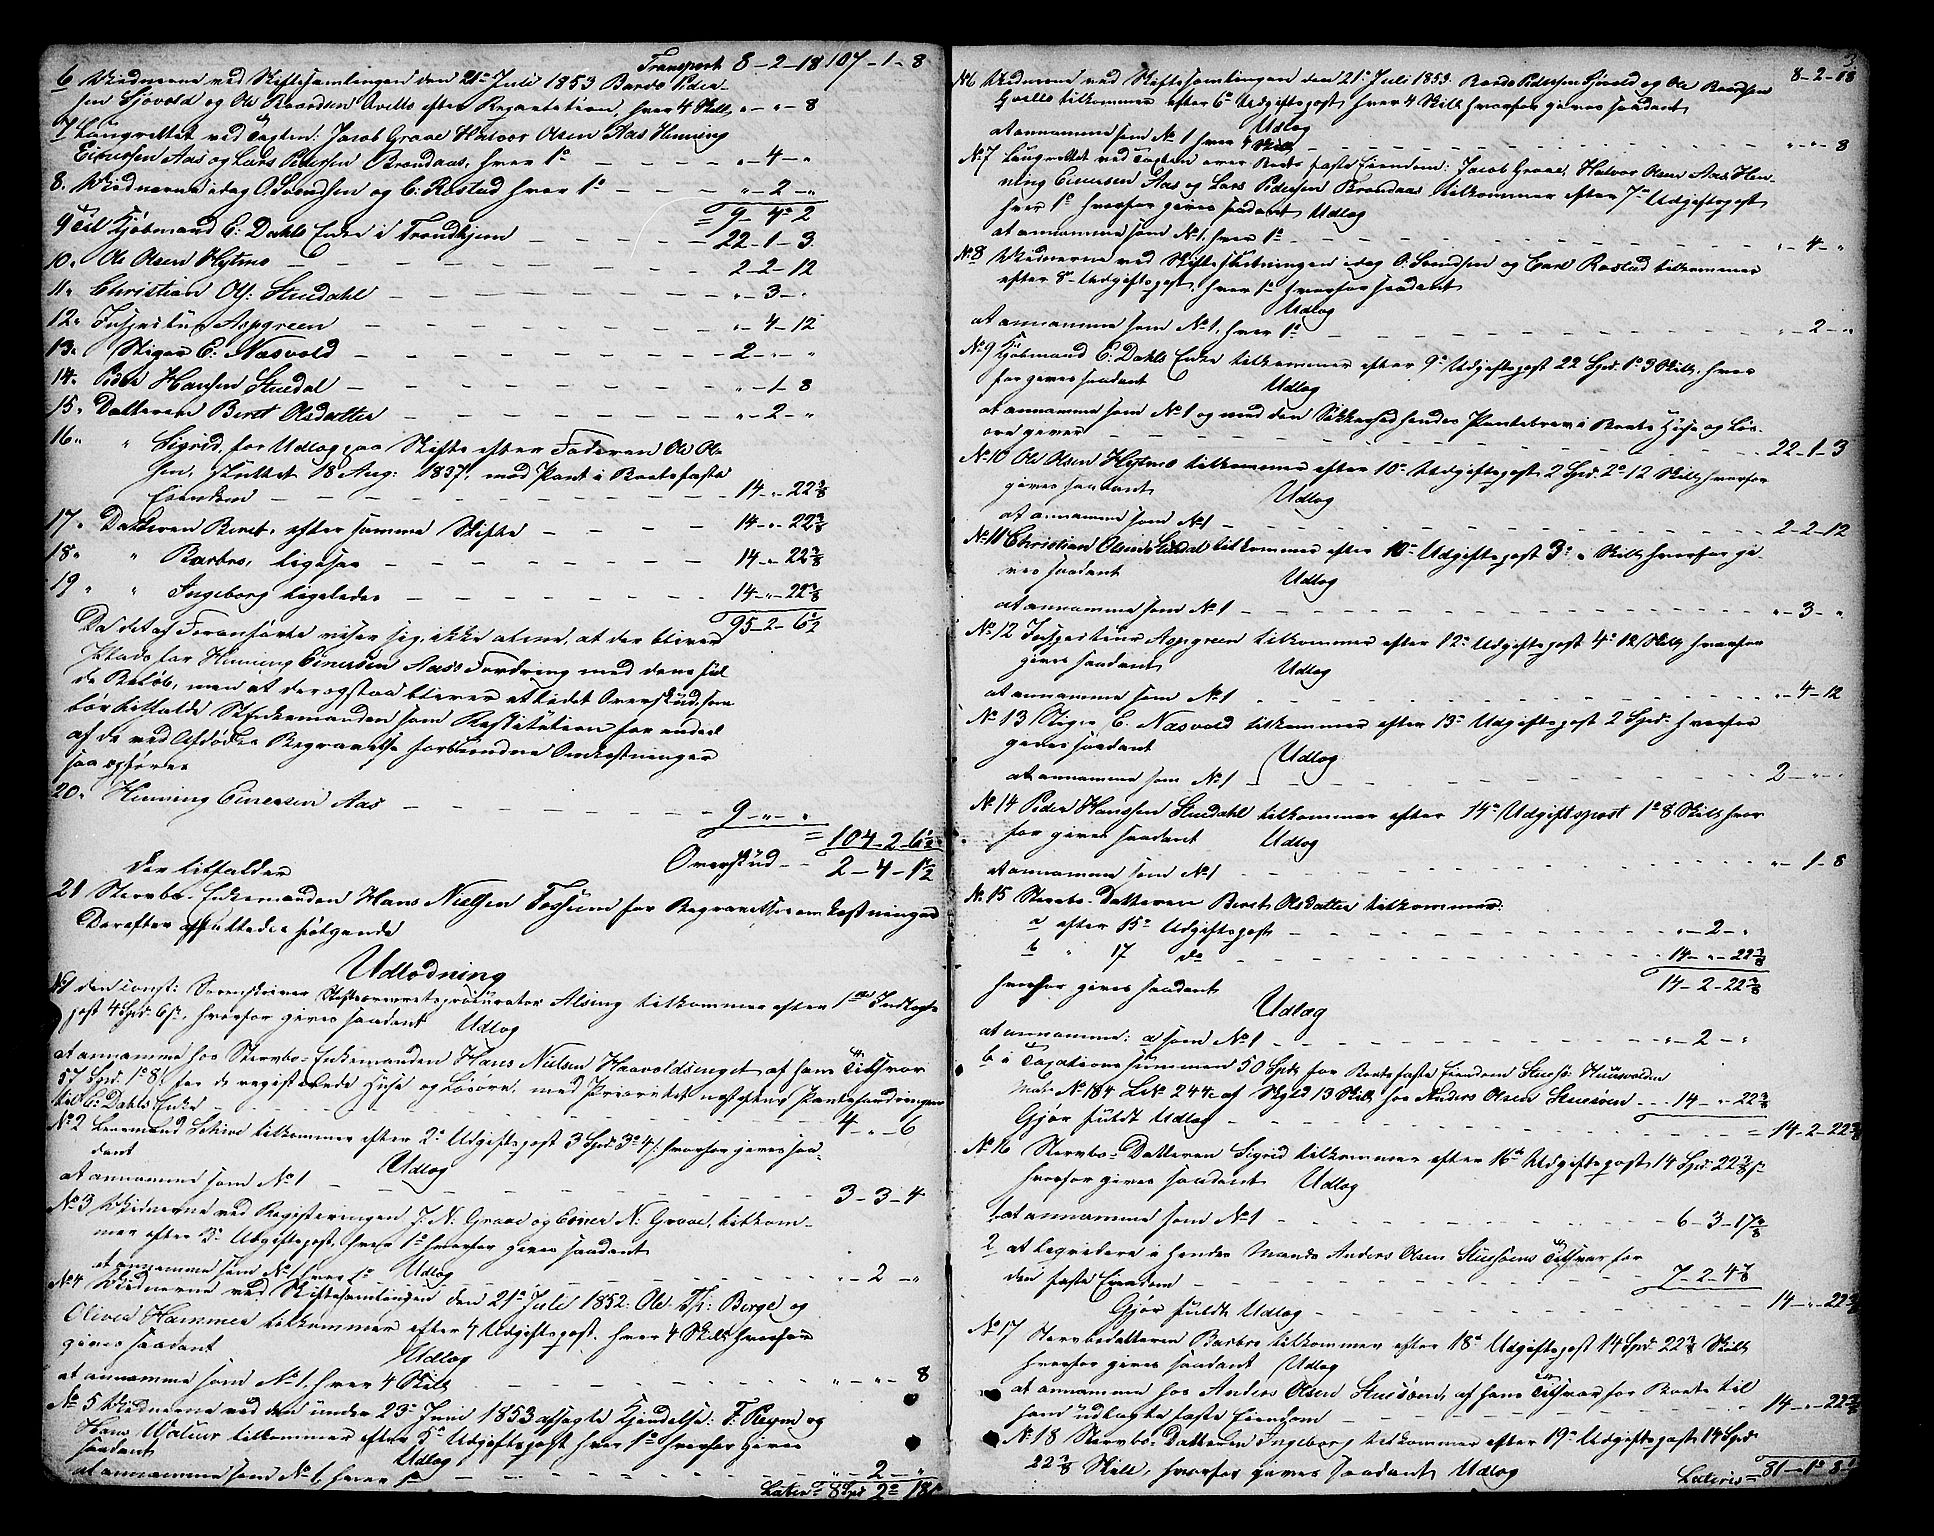 Transport 8-2-18 107-1-8
6 Vidnerne ved Skiftesamlingen den 21de Juli 1853 Bardo Peder-
sen Sjøvold og Ole Baardsen Qvello efter Repartition, hver 4 Skill „-„-8
7 Laugrettet ved Taxten: Jacob Graae Halvor Olsen Aas Henning
Einersen Aas og Lars Pedersen Brandaas, hver 1o - - - „-4-„
8. Vidnerne idag O. Svendsen og C. Rostad hver 1o - - - „-2-„
= 9-4-2
9 Til Kjøbmand C: Dahls Enke i Trondhjem - - - 22-1-3
10. Ole Olsen Hytmo - - - 2-2-12
11. Christian Ols: Stuedahl - - - „-3-„
12. Inspecteur Aspgreen - - - „-4-12
13. Stiger E. Næsvold - - - 2-„-„
14. Peder Hansen Stuedal - - - „-1-8
15. Datteren Beret Olsdatter - - - „-2-„
16. „ Sigrid, for Udlæg paa Skifte efter Faderen Ole Ol-
sen, sluttet 18 Aug: 1837, med Pant i Boets faste
Eiendom - - - 14-„-22 3/8
17. Datteren Beret, efter samme Skifte - - - 14-„-22 3/8
18. „ Barbro, ligesaa - - - 14-„-22 3/8
19. „ Ingeborg ligeledes - - - 14-„-22 3/8
95-2-6 1/2
Da det af Foranførte viser sig, ikke alene, at der bliver
tilstrækkeligt for Henning Einersen Aas's Fordring med dens ful-
de Beløb, men at der ogsaa bliver et lidet Overskud, som
bør tilfalde Enkemanden som Restitution for endeel
af de ved Afdødes Begravelse forbundne Omkostninger
saa opføres
20. Henning Einersen Aas - - - 9-„-„
= 104-2-6 1/2
Overskud - - 2-4-1 1/2
der tilfalder
21 Stervbo-Enkemanden Hans Nielsen Fossum for Begravelsesomkostninger
Derefter afsluttedes følgende
Udlodning
No 1 den const: Sorenskriver Stiftsoverretsprocurator Alsing tilkommer efter 1ste Indtægts
post 4 Spd: 6 s, hvorfor gives saadant Udlæg
at annamme hos Stervbo-Enkemanden Hans Nielsen Haavoldsenget af hans Tilsvar
57 Spd. 1o 8, for de registrerede Huse og Løsøre, med Prioritet næst efter Pantefordringen
til C: Dahls Enke - - - 4-„-6
No 2 Lensmand tilkommer efter 2den Udgiftspost 3 Spd: 3o 4 s: hvorfor gives saa-
dant Udlæg
at annamme som No 1 - - - 3-3-4
No 3 Vidnerne ved Registeringen J. N: Graae og Einer N: Graae, tilkom-
mer efter 3die Udgiftspost, hver 1o hvorfor gives saadant
Udlæg
at annamme som No 1, hver 1o - - - „-2-„
No 4 Vidnerne ved Skiftesamlingen den 21de Juli 1852: Ole Th: Berge og
Oliver Hammer tilkommer efter 4 Udgiftspost, hver 4 Skill hvorfor
gives saadant Udlæg
at annamme som No 1, hver 4 Skill - - - „-„-8
No 5 Vidnerne ved den under 23de Juni 1853 afsagte Kjendelse: F. Reym og
Hans Walur tilkommer efter 5te Udgiftspost hver 1o hvorfor gives
saadant Udlæg
at annamme som No 1, hver 1o - - - „-2-„
Lateris 8 Spd 2o 18 s
3
8-2-18
No 6 Vidnerne ved Skiftesamlingen den 21de Juli 1853 Bardo Pedersen Sjøvold og Ole Baardsen
Qvello tilkommer efter 6te Udgiftspost hver 4 Skill hvorfor gives saadant
Udlæg
at annamme som No 1 hver 4 Skill - - - „-„-8
No 7 Laugrettet ved Taxten over Boets faste Eiendom: Jacob Graae, Halvor Olsen Aas, Hen-
ning Einersen Aas og Lars Pedersen Brandaas tilkommer efter 7de Udgiftspost
hver 1o hvorfor gives saadant Udlæg
at annamme som No 1, hver 1o - - - „-4-„
No 8 Vidnerne ved Skifteslutningen idag O. Svendsen og Carl Rostad tilkommer
efter 8de Udgiftspost, hver 1o hvorfor saadant
Udlæg
at annamme som No 1, hver 1o - - - „-2-„
No 9 Kjøbmand C: Dahls Enke tilkommer efter 9de Udgiftspost 22 Spd. 1o 3 Skill, hvor
for gives saadant Udlæg
at annamme som No 1 og med den Sikkerhed hendes Pantebrev i Boets Huse og Løs-
øre giver - - - 22-1-3
No 10 Ole Olsen Hytmo tilkommer efter 10de Udgiftspost 2 Spd. 2o 12 Skill hvorfor
gives saadant Udlæg
at annamme som No 1 - - - 2-2-12
No 11 Christian Olsen Stuedal tilkommer efter 10de Udgiftspost 3o „ Skill hvorfor gi-
ves saadant Udlæg
at annamme som No 1 - - - „-3-„
No 12 Inspecteur Aspgreen tilkommer efter 12te Udgiftspost 4o 12 Skill, hvorfor
gives saadant Udlæg
at annamme som No 1 - - - „-4-12
No 13 Stiger E. Næsvold tilkommer efter 13de Udgiftspost 2 Spd: hvorfor
gives saadant Udlæg
at annamme som No 1 - - - 2-„-„
No 14 Peder Hanssen Stuedahl tilkommer efter 14de Udgiftspost 1o 8 Skill hvor
for gives saadant Udlæg
at annamme som No 1 - - - „-1-8
No 15 Stervbo-Datteren Beret Olsdatter tilkommer:
a efter 15de Udgiftspost - - - „-2-„
b „ 17 do - - - 14-„-22 3/8
hvorfor gives saadant 14-2-22 3/8
Udlæg
at annamme: a som No 1 - - - „-2-„
b i Taxationssummen 50 Spd for Boets faste Eiendom Stuesø Haavolden
Matr No 184 Lb No 244c af Skyld 13 Skill hos Anders Olsen Stuesøen - - 14-„-22 3/8
Gjør fuldt Udlæg - - - = 14-2-22 3/8
No 16 Stervbo-Datteren Sigrid tilkommer efter 16de Udgiftspost 14 Spd. 22 3/8 s
hvorfor gives saadant Udlæg
1. at annamme som No 1 - - - 6-3-17 7/8
2 at liqvidere i hendes Mands Anders Olsen Stuesøens Tilsvar for
den faste Eiendom - - - 7-2-4 4/8
Gjør fuldt Udlæg - - - 14-„-22 3/8
No 17 Stervbodatteren Barbro tilkommer efter 18de Udgiftspost 14 Spd: 22 3/8 Skill
hvorfor gives saadant Udlæg
at annamme hos Anders Olsen Stuesøen, af hans Tilsvar for Boets til
ham udlagte faste Eiendom - - - 14-„-22 3/8
No 18 Stervbo-Datteren Ingeborg tilkommer efter 19de Udgiftspost 14 Spd:
22 3/8 Skill, hvorfor gives saadant Udlæg
Lateris = 81-1o 8